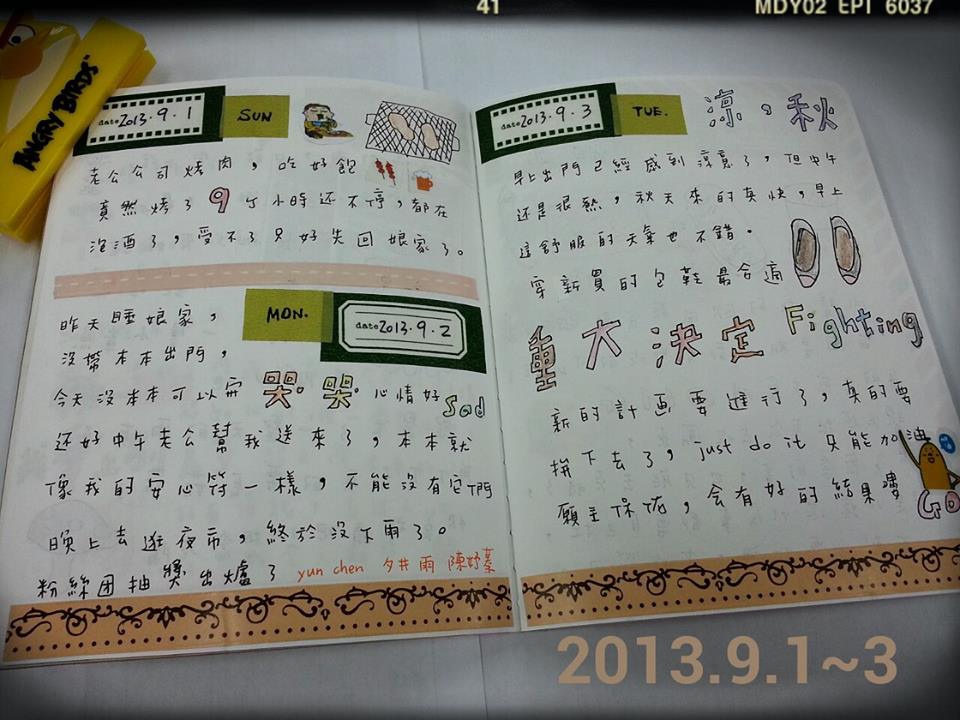 41
MDY02 EPI 6037
ANGRY BIRDS
date 2013.9.1
SUN
老公公司烤肉，吃好飽
竟然烤了9个小時还不停，都在
泡酒了，受不了只好先回娘家了。
MON.
date 2013.9.2
昨天睡娘家，
沒帶本本出門，
今天沒本本可以寫 哭。哭。心情好 Sad
还好中午老公幫我送來了，本本就
像我的安心符一樣，不能沒有它們
晚上去逛夜市，終於沒下雨了。
粉絲团抽獎出爐了 yun chen 夕井雨 陳妤蓁
date 2013.9.3
TUE.
涼，秋
早上出門已經感到涼意了，但中午
还是很熱，秋天來的真快，早上
這舒服的天氣也不錯。
穿新買的包鞋最合適
重大決定 Fighting
新的計画要進行了，真的要
拼下去了，just do it 只能加油
願主保佑，会有好的結果嘍
GO
2013.9.1~3